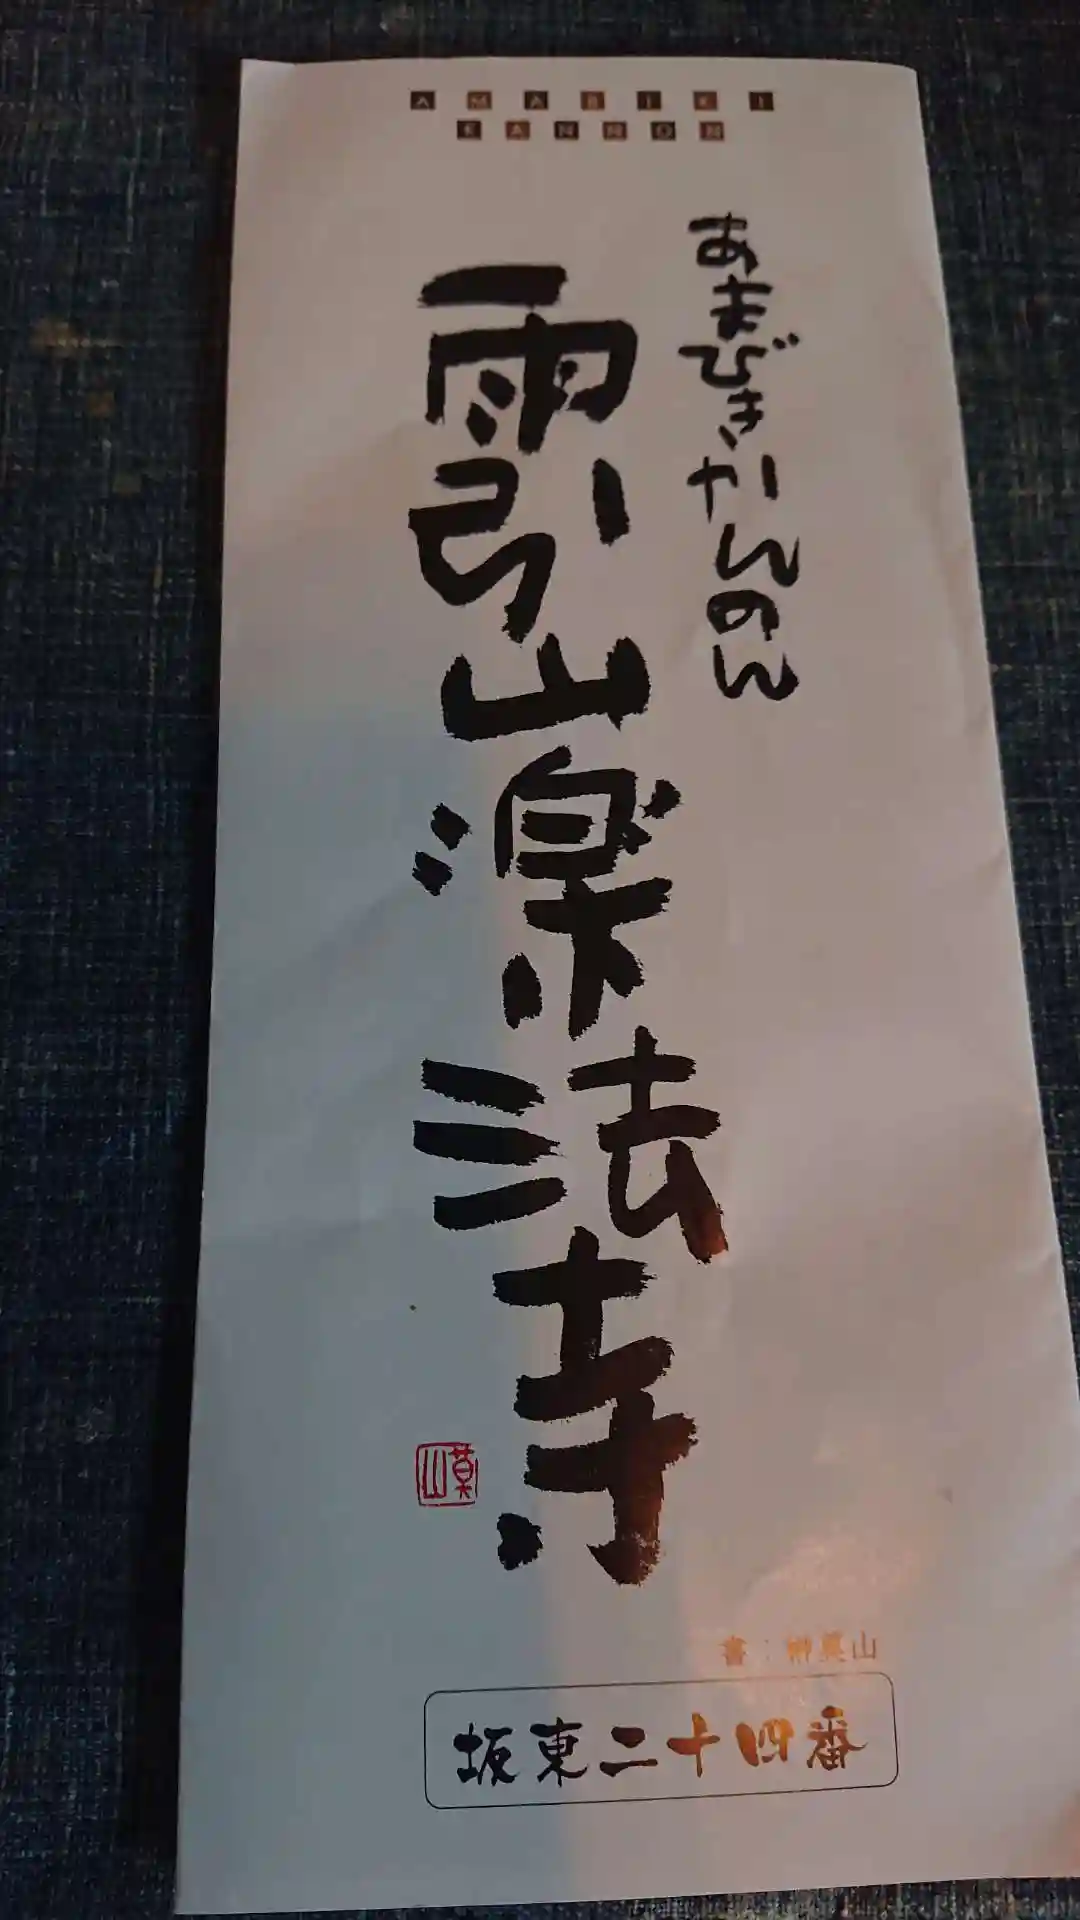 AMABIKI
KANNON
あまびきかんのん
雨引山楽法寺
莫山
書:榊莫山
坂東二十四番